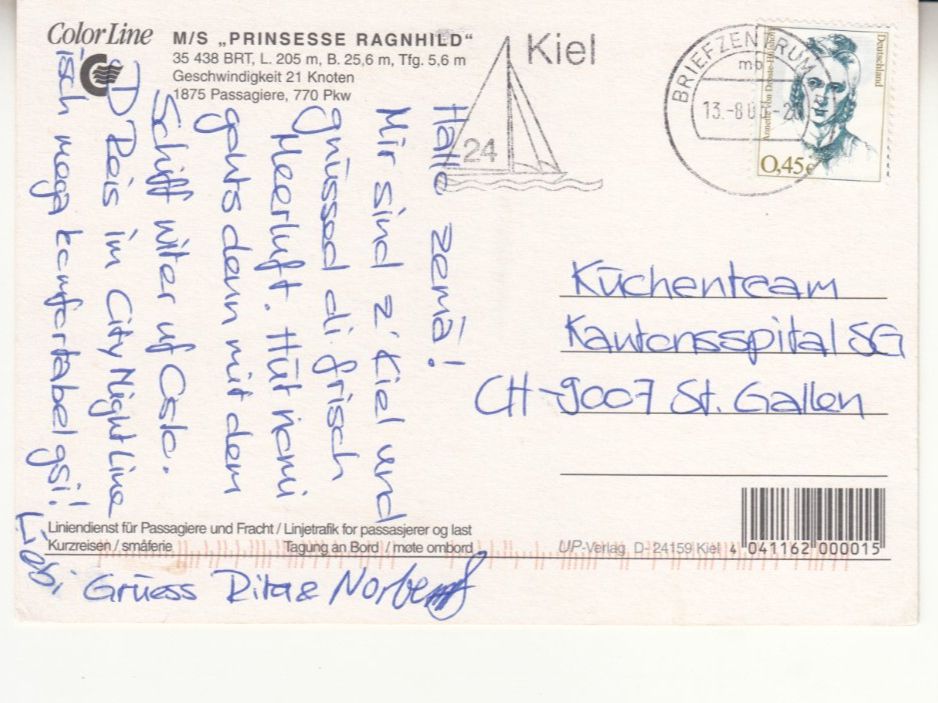 Color Line
M/S „PRINSESSE RAGNHILD“
35 438 BRT, L. 205 m, B. 25,6 m, Tfg. 5,6 m
Geschwindigkeit 21 Knoten
1875 Passagiere, 770 Pkw
Kiel
24
BRIEFZENTRUM
mb
13.-8.0
Deutschland
0,45€
Hallo zemä!
Mir sind z'Kiel und
gnüssed di frisch
Meerluft. Hüt
gohts denn mit dem
Schiff witer uf Oslo.
D'Reis im City Night Line
isch mega komfortabel gsi!
Liebi Grüess Rita & Norbert
Küchenteam
Kantonsspital SG
CH-9007 St. Gallen
Liniendienst für Passagiere und Fracht / Linjetrafik for passasjerer og last
Kurzreisen / småferie
Tagung an Bord / møte ombord
UP-Verlag, D-24159 Kiel
4 041162 000015